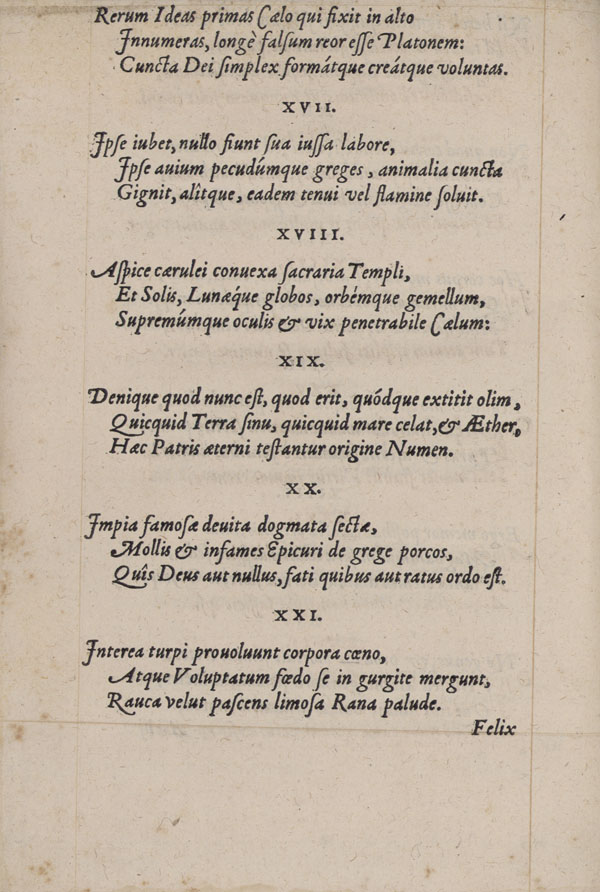 Rerum Ideas primas Cælo qui fixit in alto
Innumeras, longè falsum reor esse Platonem:
Cuncta Dei simplex formátque creátque voluntas.
XVII.
Ipse iubet, nullo fiunt sua iussa labore,
Ipse auium pecudúmque greges, animalia cuncta
Gignit, alîtque, eadem tenui vel flamine soluit.
XVIII.
Aspice cærulei conuexa sacraria Templi,
Et Solis, Lunæq́ue globos, orbémque gemellum,
Supremúmque oculis & vix penetrabile Cælum:
XIX.
Denique quod nunc est, quod erit, quódque extitit olim,
Quicquid Terra sinu, quicquid mare celat, & Æther,
Hæc Patris æterni testantur origine Numen.
XX.
Impia famosæ deuita dogmata sectæ,
Mollis & infames Epicuri de grege porcos,
Quîs Deus aut nullus, fati quibus aut ratus ordo est.
XXI.
Interea turpi prouoluunt corpora cœno,
Atque Voluptatum fœdo se in gurgite mergunt,
Rauca velut pascens limosa Rana palude.
Felix